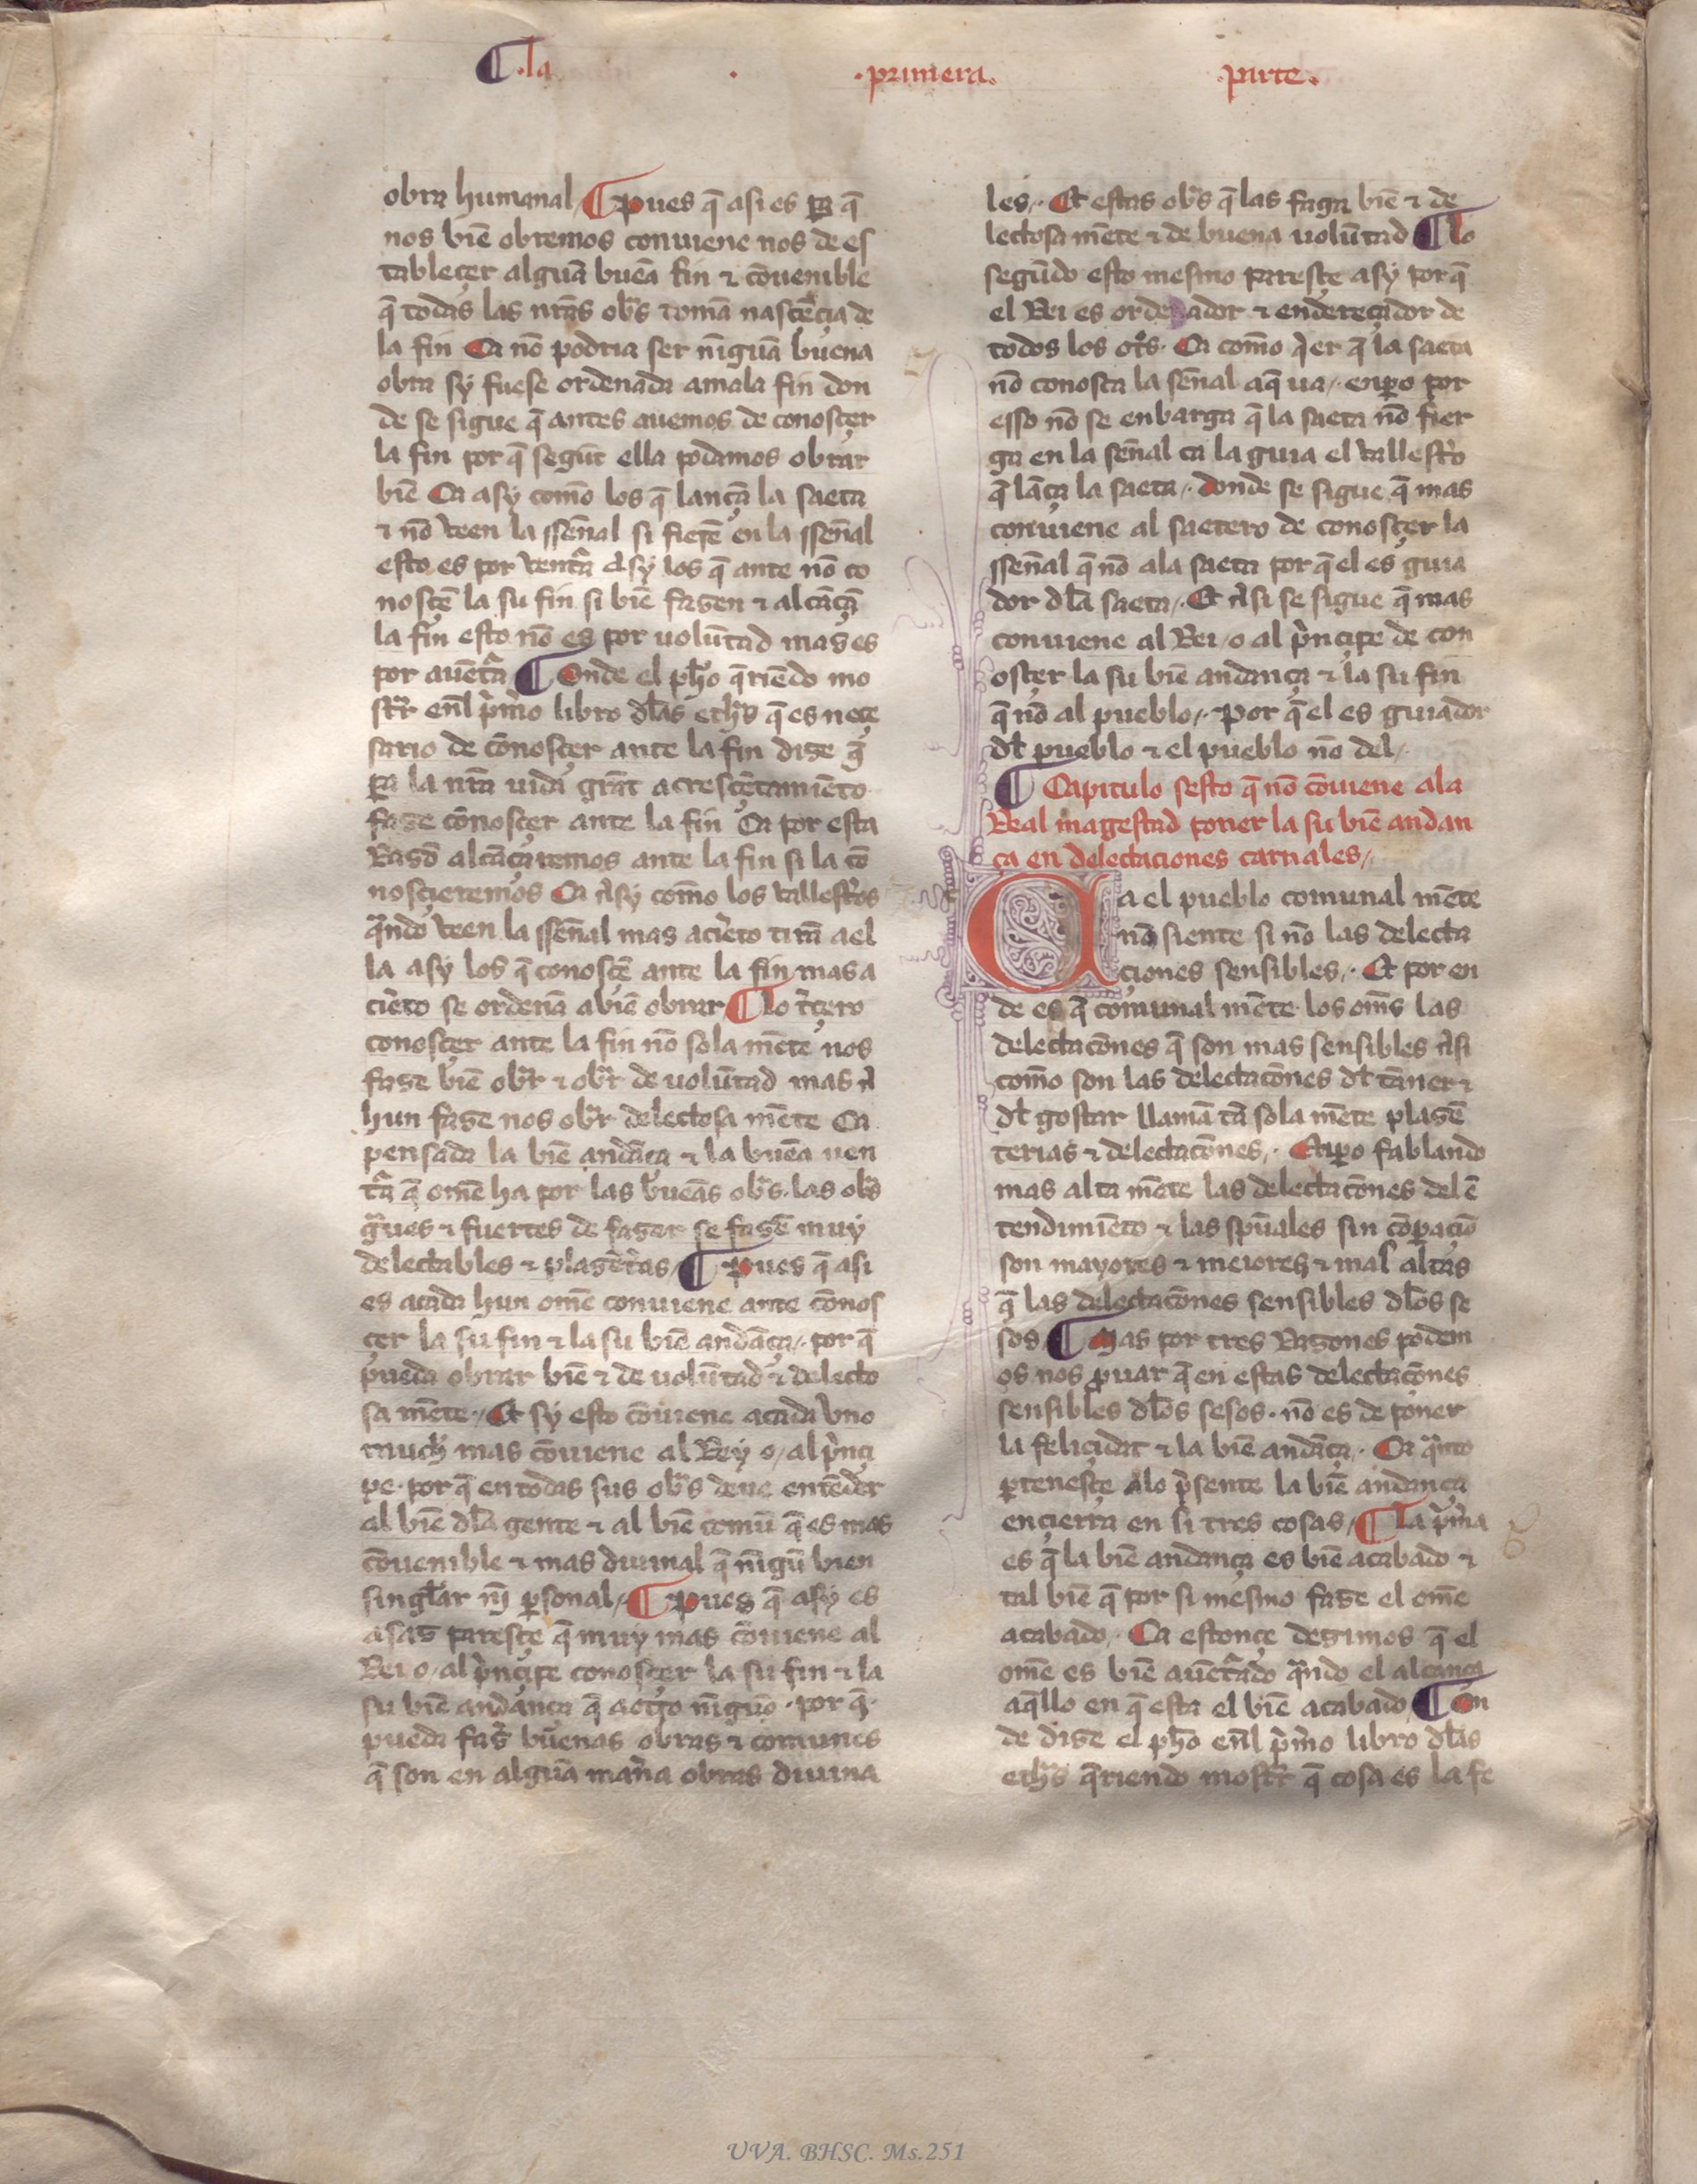 ¶ .la . .primera. .parte.
obra humanal ¶ pues q̃ asi es p̃a q̃
nos biẽ obremos conuiene nos de es
tableçer algũa buẽa fin ⁊ cõuenible
q̃ todas las nr̃as ob̃s tomã nasçẽçia de
la fin Ca nõ podria ser nĩgũa buena
obra sy fuese ordenada amala fin don
de se sigue q̃ antes auemos de conosçer
la fin por q̃ segũt ella podamos obrar
biẽ Ca asy como los q̃ lançã la saeta
⁊ nõ veen la sseñal si fierẽ en la sseñal
esto es por ventr̃a Asy los q̃ ante nõ co
nosçẽ la su fin si biẽ fazen ⁊ alcãçã
la fin esto nõ es por volũtad mas es
por auẽtr̃a ¶ Onde el ph̃o q̃riẽdo mo
str̃r enl̃ pr̃imo libro dl̃as eth̃s q̃ es neçe
sario de cõnosçer ante la fin dize q̃
p̃a la nr̃a uida grãt acresçẽtamiẽto
faze cõnosçer ante la fin Ca por esta
Razõ alcãçaremos ante la fin si la cõ
nosçieremos Ca Asy como los vallest̃os
q̃ndo veen la sseñal mas açiẽto tirã a el
la asy los q̃ conosçẽ ante la fin mas a
çiẽto se ordenã a biẽ obrar ¶ lo t̃çero
conosçer ante la fin nõ sola mẽte nos
faze biẽ ob̃r ⁊ ob̃r de volũtad mas A
hun faze nos ob̃r delectosa mẽte Ca
pensada la biẽ andãça ⁊ la buẽa uen
tr̃a q̃ omẽ ha por las bueãs ob̃s. las ob̃s
g̃ues ⁊ fuertes de fazer se fazẽ muy
delectables ⁊ plazẽt̃as ¶ pues q̃ asi
es acada hun omẽ conuiene ante cõnos
çer la su fin ⁊ la su biẽ andãça. por q̃
pueda obrar biẽ ⁊ de volũtad ⁊ delecto
sa mẽte. Et sy esto cõuiene acada vno
much̃ mas cõuiene al Rey o/ al pr̃nçi
pe. por q̃ en todas sus ob̃s deue entẽder
al biẽ dl̃a gente ⁊ al biẽ comũ q̃ es mas
cõuenible ⁊ mas diuinal q̃ nĩgũ bien
singl̃ar nj̃ p̃sonal ¶ pues q̃ asy es
asaz paresçe q̃ muy mas cõuiene al
Rei o/ al pr̃nçipe conosçer la su fin ⁊ la
su biẽ andança q̃ a ot̃o nĩgũo. por q̃
pueda faz̃ buenas obras ⁊ comunes
q̃ son en algũa mañra obras diuina
les. Et estas ob̃s q̃ las faga biẽ ⁊ de
lectosa mẽte ⁊ de buena volũtad ¶ lo
segũdo esto mesmo paresçe asy por q̃
el Rei es ordenador ⁊ endereçador de
todos los ot̃s. Ca como q̃er q̃ la saeta
nõ conosca la señal aq̃ ua. enp̃o por
esso nõ se enbarga q̃ la saeta nõ fier
ga en la señal ca la guia el vallest̃o
q̃ lãça la saeta. donde se sigue q̃ mas
conuiene al saetero de conosçer la
sseñal q̃ nõ ala saeta por q̃ el es guia
dor dl̃a saeta. Et Asi se sigue q̃ mas
conuiene al Rei/o al pr̃nçipe de con
osçer la su biẽ andança ⁊ la su fin
q̃ nõ al pueblo. por q̃ el es guiador
dl̃ pueblo ⁊ el pueblo nõ del.
¶ Capitulo sesto q̃ nõ cõuiene ala
Real magestad poner la su biẽ andan
ça en delectaciones carnales.
Ca el pueblo comunal mẽte
nõ siente si nõ las delecta
çiones sensibles. Et por en
de es q̃ comunal mẽte los oms̃ las
delectacõnes q̃ son mas sensibles Asi
como son las delectacõnes dl̃ tãner ⁊
dl̃ gostar llamã tã sola mẽte plazẽ
terias ⁊ delectacõnes. Enp̃o fablando
mas alta mẽte las delectacõnes del ẽ
tendimiẽto ⁊ las sp̃uales sin cõparaciõ
son mayores ⁊ meiores ⁊ mas altas
q̃ las delectacõnes sensibles dl̃os se
sos ¶ Mas por tres Razones podem
os nos p̃uar q̃ en estas delectaçõnes
sensibles dl̃os sesos. nõ es de poner
la feliçidat ⁊ la biẽ andãça. Ca q̃nto
p̃tenesçe Alo pr̃sente la biẽ andança
ençierra en si tres cosas ¶ La pr̃ima
es q̃ la biẽ andança es biẽ acabado ⁊
tal biẽ q̃ por si mesmo faze el omẽ
acabado. Ca estonçe dezimos q̃ el
omẽ es biẽ auẽtr̃ado q̃ndo el alcança
aq̃llo en q̃ esta el biẽ acabado ¶ On
de dize el ph̃o enl̃ pr̃imo libro dl̃as
eth̃s q̃riendo mostr̃r q̃ cosa es la fe
UVA. BHSC. Ms.251